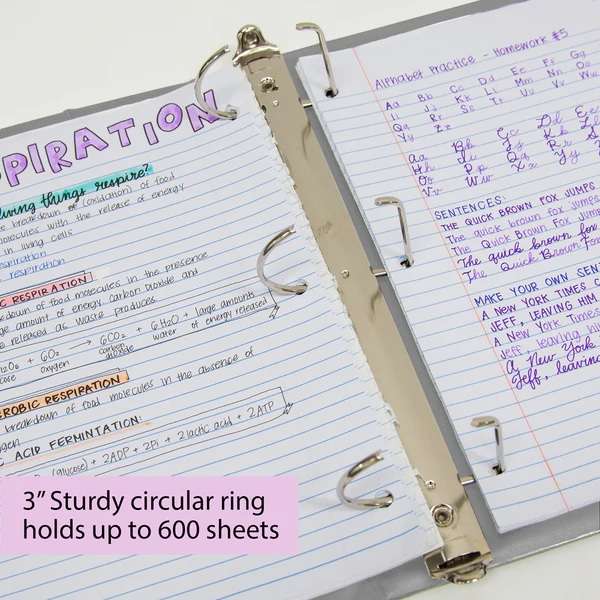 PIRATION
living things respire?
breakdown of (oxidation) of food
molecules with the release of energy
in living cells
respiration
respiration
RESPIRATION
down of food molecules in the presence
amount of energy. Carbon Dioxide and
released as waste products
+ 6O2 → 6CO2 + 6H2O + large amounts
oxygen carbon dioxide water of energy released
EROBIC RESPIRATION
breakdown of food molecules in the absence of
ACID FERMINTATION:
(glucose) + 2ADP + 2Pi → 2 lactic acid + 2ATP
Alphabet Practice - Homework #5
Aa Bb Cc Dd Ee Ff Gg
Ii Jj Kk Ll Mm Nn Oo
Qq Rr Ss Tt Uu Vv Ww
Yy Zz
Aa Bb Cc Dd Ee
Hh Ii Jj Kk Ll
Oo Pp Qq Rr Ss
Vv Ww Xx Yy Zz
SENTENCES:
THE QUICK BROWN FOX JUMPS
The quick brown fox jumps
The Quick Brown Fox Jumps
The quick brown fox
The Quick Brown Fox
MAKE YOUR OWN SENT
A NEW YORK TIMES C
JEFF, LEAVING HIM
A New York Times
Jeff, leaving him
A New York
Jeff, leaving
3” Sturdy circular ring
holds up to 600 sheets